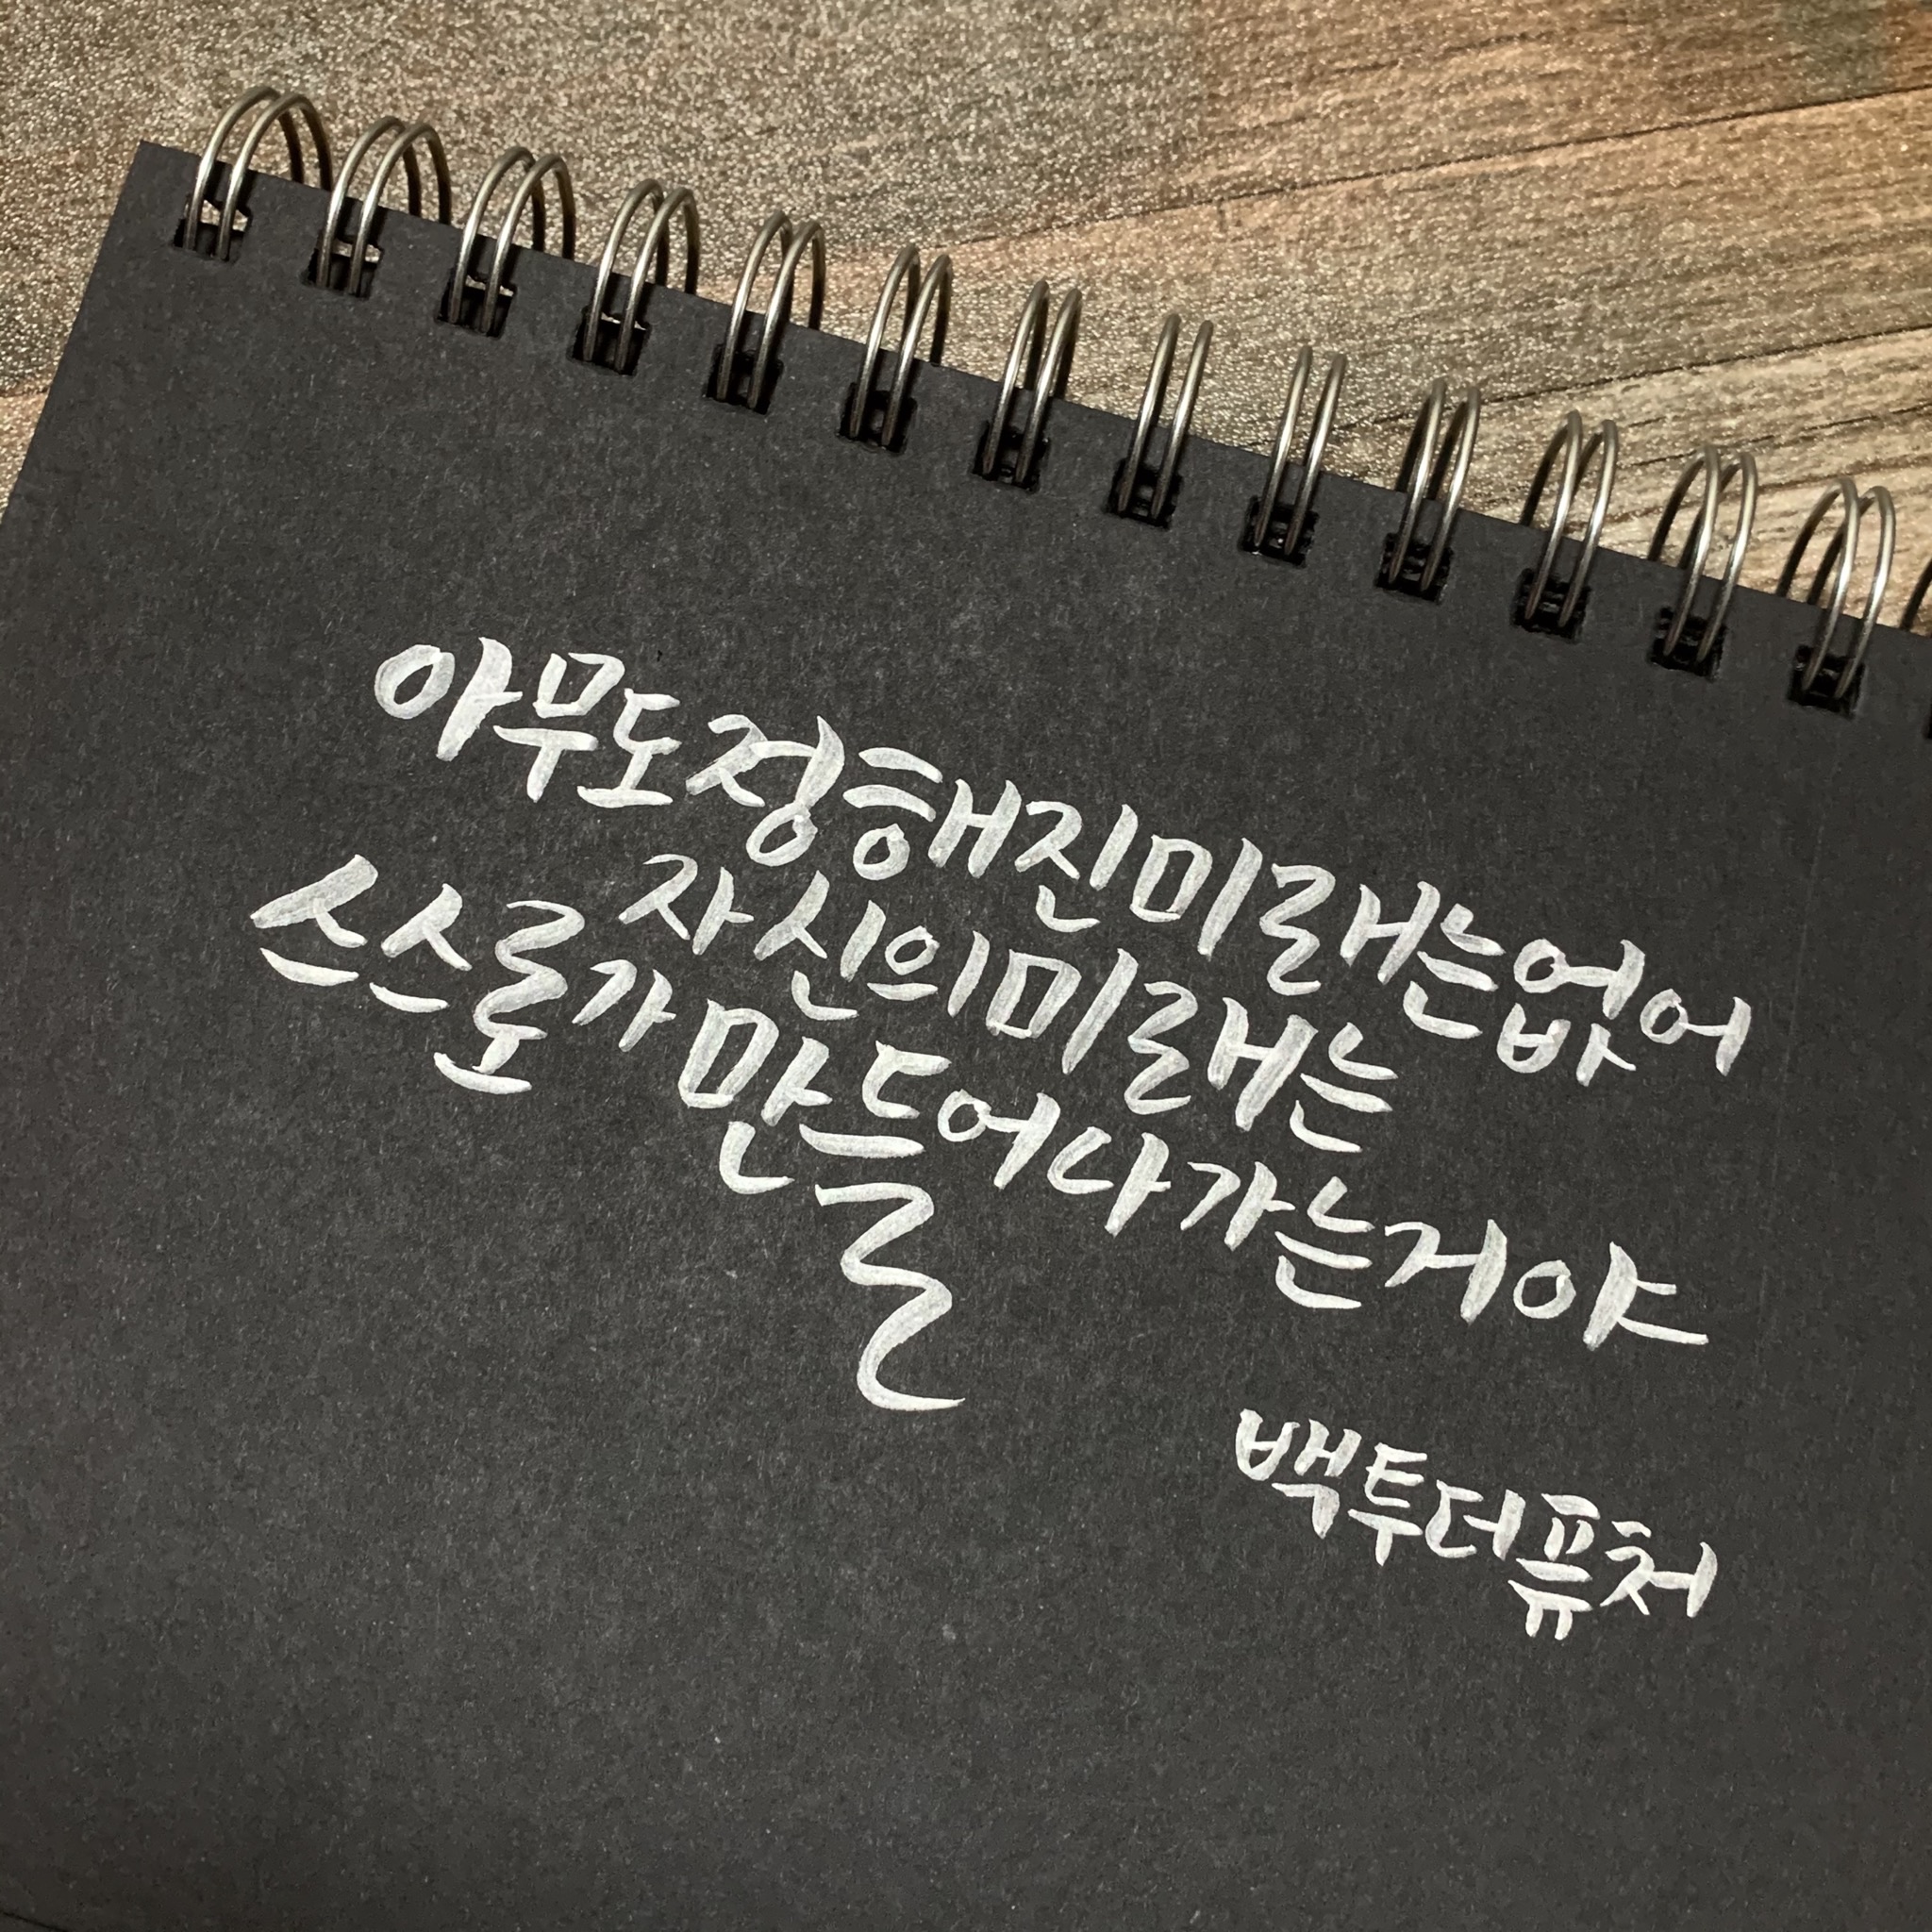 아무도 정해진 미래는 없어
자신의 미래는
스스로가 만들어 나가는 거야
백투더퓨처